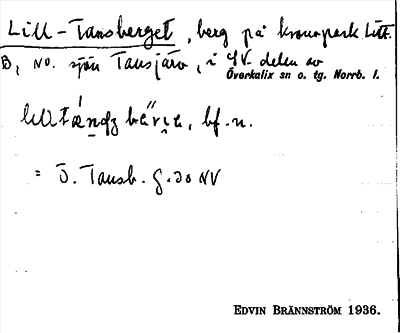 Lill-Tansberget, berg på kronopark Litt.
B, NO. sjön Tansjärv, i SV. delen av
Överkalix sn o. tg. Norrb. l.
bf. n.
= J. Tansb. g. 30 NV
EDVIN BRÄNNSTRÖM 1936.